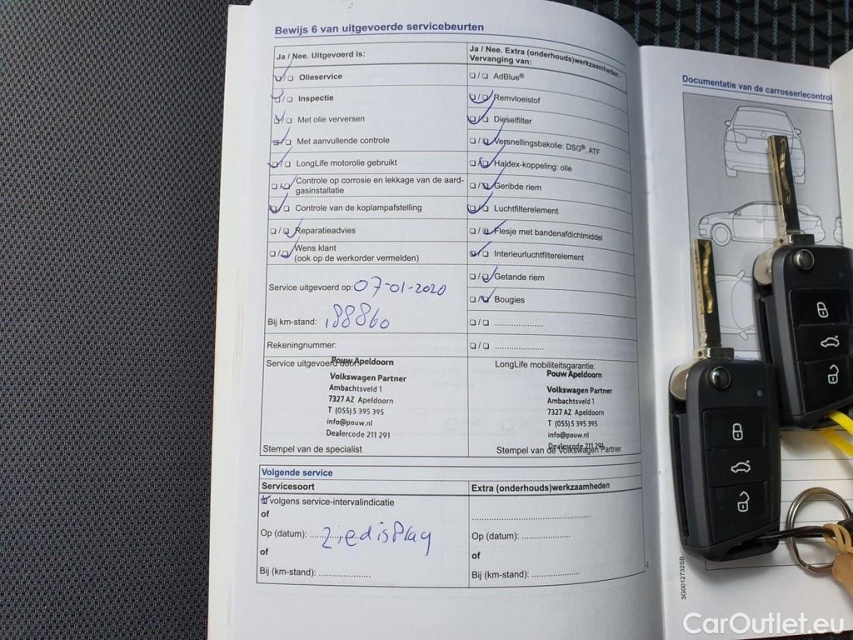 Bewijs 6 van uitgevoerde servicebeurten
Ja / Nee. Uitgevoerd is:
Olieservice
Inspectie
Met olie verversen
Met aanvullende controle
LongLife motorolie gebruikt
Controle op corrosie en lekkage van de aard-
gasinstallatie
Controle van de koplampafstelling
Reparatieadvies
Wens klant
(ook op de werkorder vermelden)
Service uitgevoerd op: 07-01-2020
Bij km-stand: 188860
Rekeningnummer:
Service uitgevoerd door:
Pouw Apeldoorn
Volkswagen Partner
Ambachtsveld 1
7327 AZ Apeldoorn
T (055) 5 395 395
info@pouw.nl
Dealercode 211 291
Stempel van de specialist
Ja / Nee. Extra (onderhouds)werkzaamheden -
Vervanging van:
AdBlue®
Remvloeistof
Dieselfilter
Versnellingsbakolie: DSG®, ATF
Haldex-koppeling: olie
Geribde riem
Luchtfilterelement
Flesje met bandenafdichtmiddel
Interieurluchtfilterelement
Getande riem
Bougies
LongLife mobiliteitsgarantie:
Pouw Apeldoorn
Volkswagen Partner
Ambachtsveld 1
7327 AZ Apeldoorn
T (055) 5 395 395
info@pouw.nl
Dealercode 211 291
Stempel van de Volkswagen Partner
Volgende service
Servicesoort
volgens service-intervalindicatie
of
Op (datum): Ziedisplay
of
Bij (km-stand):
Extra (onderhouds)werkzaamheden
Op (datum):
of
Bij (km-stand):
Documentatie van de carrosseriecontrol
3G0012732SB
CarOutlet.eu